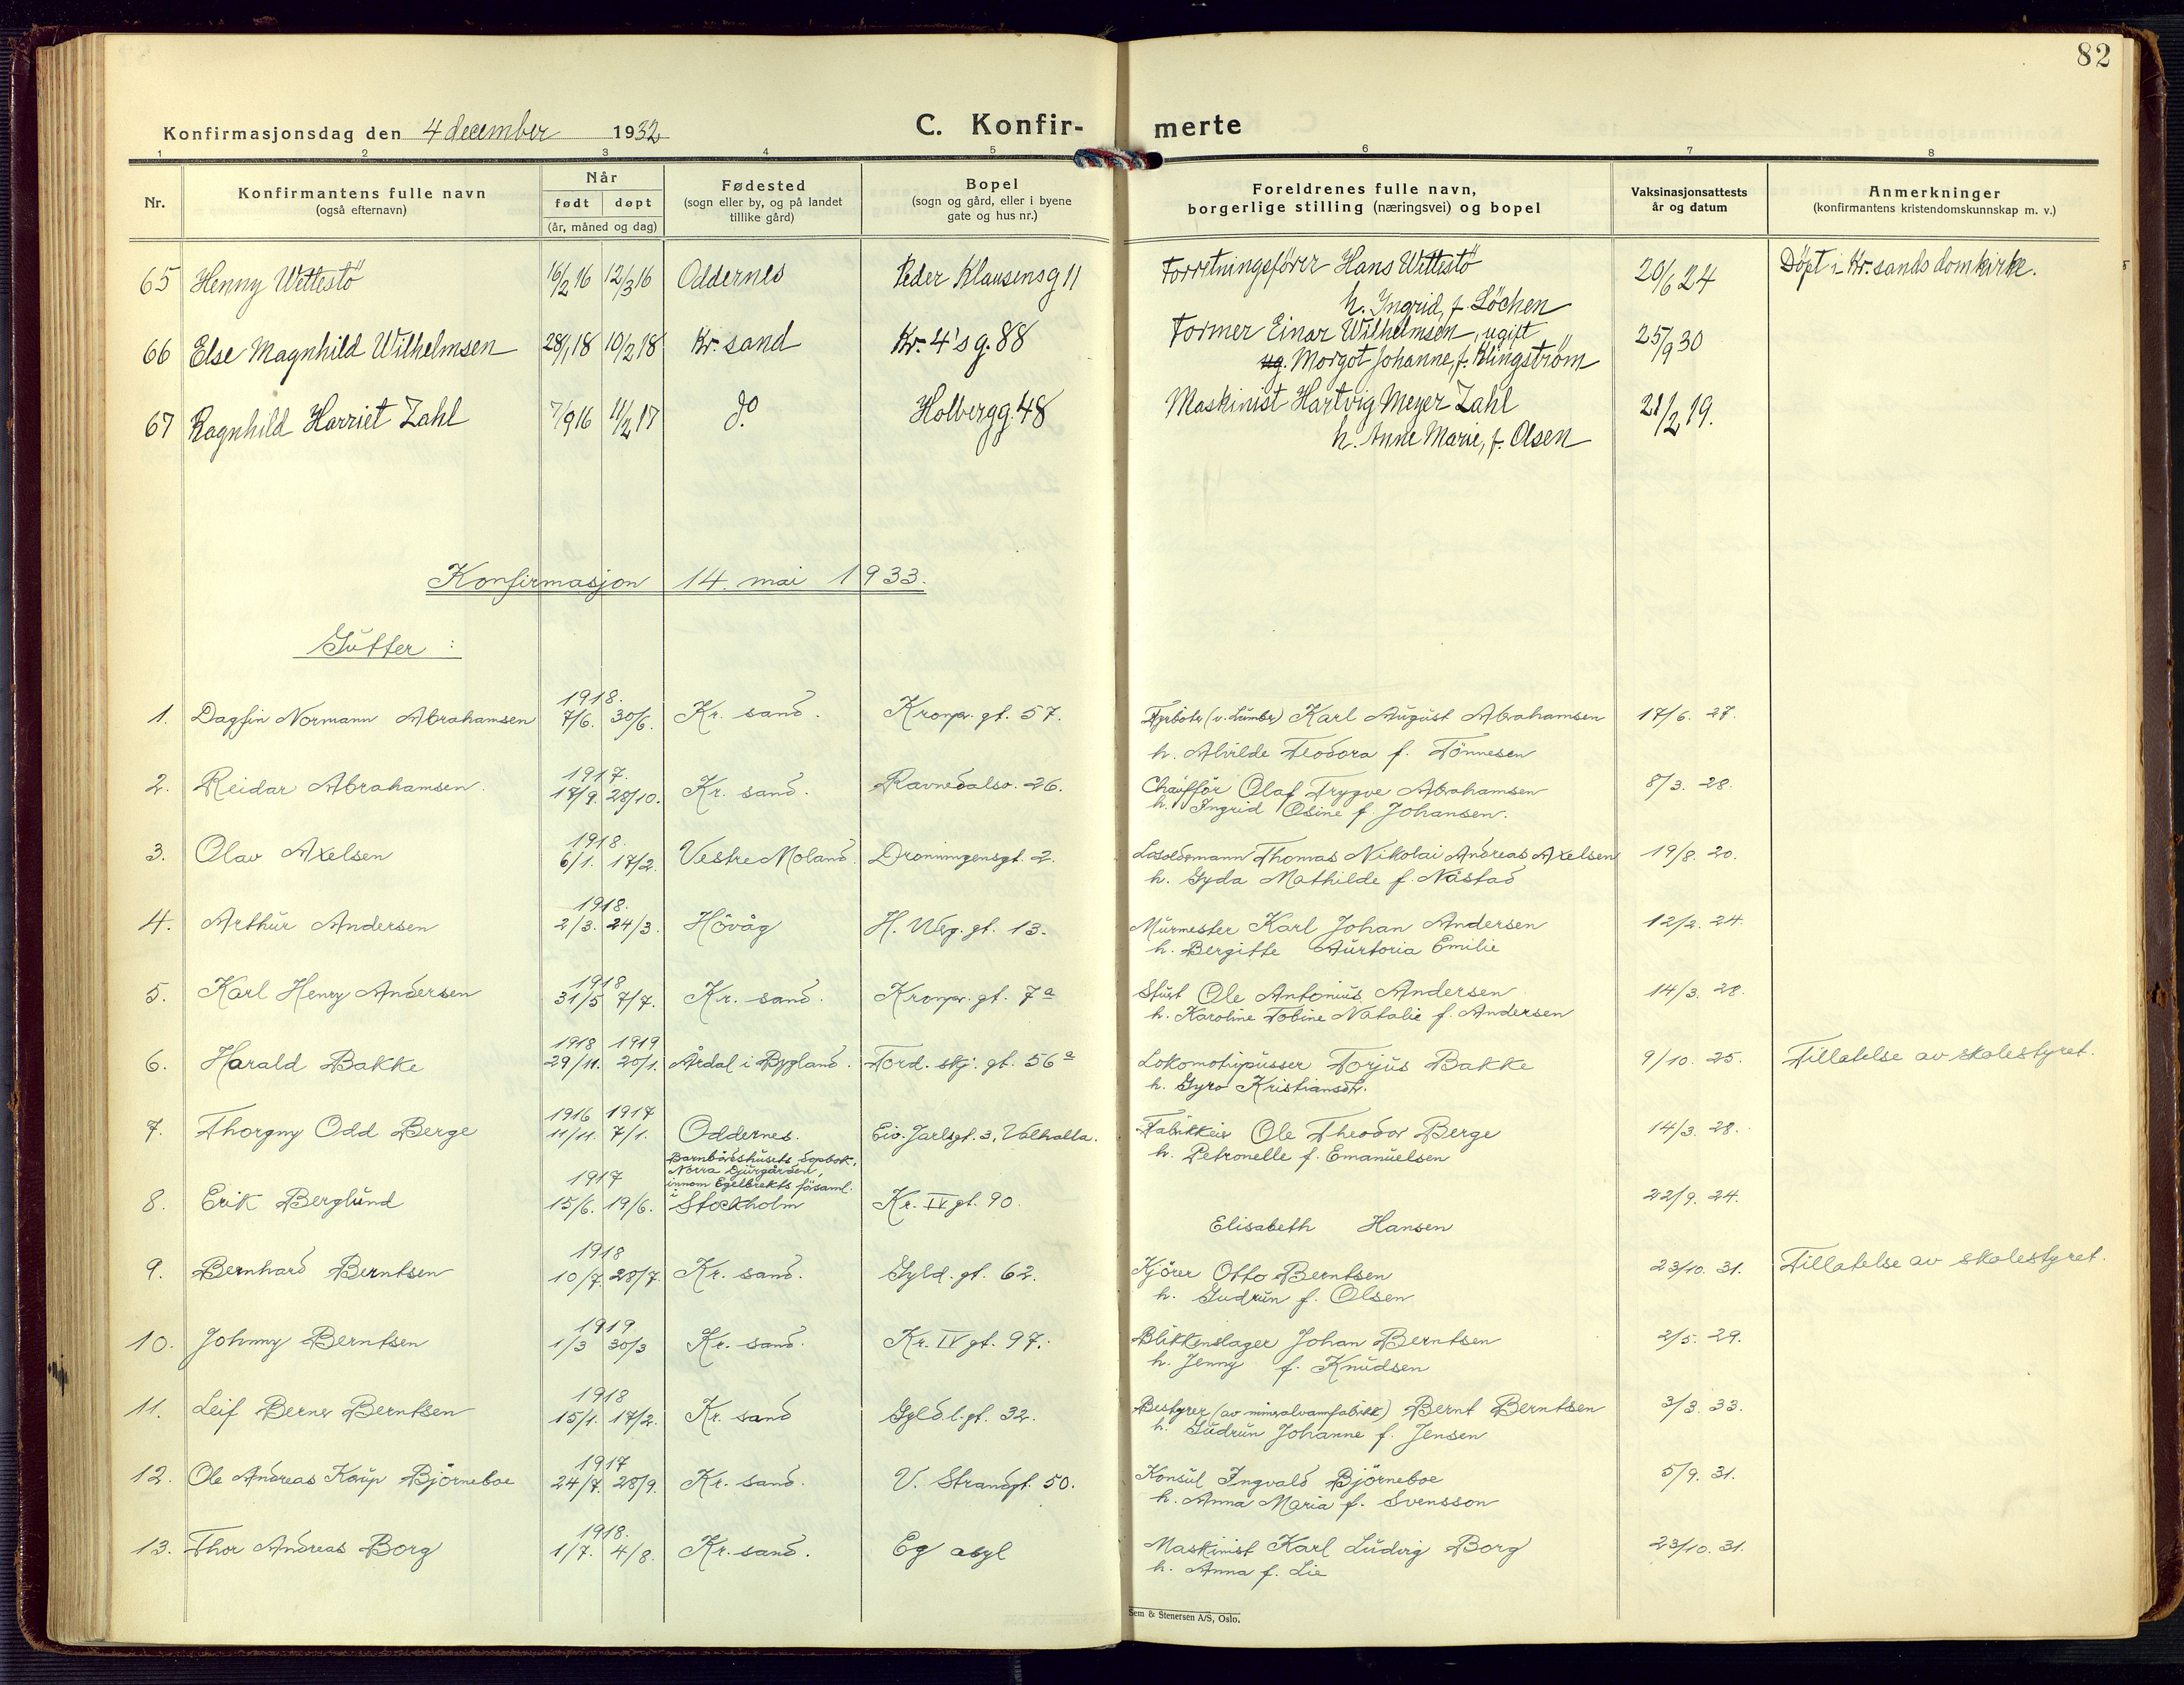 82
Konfirmasjonsdag den 4 december 1932
C. Konfir-
merte
1 2 3 4 5 6 7 8
Nr.
Konfirmantens fulle navn
(også efternavn)
Når
født døpt
(år, måned og dag)
Fødested
(sogn eller by, og på landet
tillike gård)
Bopel
(sogn og gård, eller i byene
gate og hus nr.)
Foreldrenes fulle navn,
borgerlige stilling (næringsvei) og bopel
Vaksinasjonsattests
år og datum
Anmerkninger
(konfirmantens kristendomskunnskap m. v.)
65 Henny Wettestö 16/2 16 12/3 16 Oddernes Peder Klausensg 11 Forretningsförer Hans Wittestö 20/6 24 Döpt i Kr.sands domkirke.
h. Ingrid, f. Löchen
66 Else Magnhild Wilhelmsen 28/1 18 10/2 18 Kr. sand Kr. 4's g. 88 Former Einar Wilhelmsen, ugift 25/9 30
ug. Morgot Johanne, f. Klingström
67 Ragnhild Harriet Zahl 7/9 16 11/2 17 do Holbergg. 48 Maskinist Hartvig Meyer Zahl 21/2 19.
h. Anne Marie, f. Olsen
Konfirmasjon 14. mai 1933.
Gutter :
1918.
1. Dagfin Normann Abrahamsen 7/6. 30/6. Kr. sand. Kronpr. gt. 57. Fyrbötr (v. Lumber) Karl August Abrahamsen 17/6. 27.
h. Alvilde Teodora f. Tönnesen
1917.
2. Reidar Abrahamsen. 17/9. 28/10. Kr. sand. Ravnedalsv. 26. Chaufför Olaf Trygve Abrahamsen 8/3. 28.
h. Ingrid Osine f. Johansen.
1918.
3. Olav Axelsen 6/1. 17/2. Vestre Moland. Dronningensgt. 2. Losoldermann Thomas Nikolai Andreas Axelsen 19/8. 20.
h. Gyda Mathilde f. Nåstad
1918.
4. Arthur Andersen 2/3. 24/3. Hövåg H. Werg. gt. 13. Murmester Karl Johan Andersen 12/2. 24.
h. Bergitte Aurtoria Emilie
1918
5. Karl Henry Andersen 31/5 7/7. Kr. sand. Kronpr. gt. 7a Stuert Ole Antonius Andersen 14/3. 28.
h. Karoline Tobine Natalie f. Andersen
1918 1919
6. Harald Bakke 29/11. 20/1. Årdal i Bygland. Tord. skj. gt. 56a Lokomotivpusser Torjus Bakke 9/10. 25. Tillatelse av skolestyret.
h. Gyro Kristiansdtr.
1916 1917
7. Thorgny Odd Berge 11/11. 7/1. Oddernes. Eiv. Jarlsgt. 3, Valhalla. Fabrikkeier Ole Theodor Berge 14/3. 28.
h. Petronelle f. Emanuelsen
Barnbördshusets dopbok,
Norra Djurgården,
innom Egelbrekts församl.
1917
8. Erik Berglund 15/6. 19/6. i Stockholm Kr. IV gt. 90. 22/9. 24.
Elisabeth Hansen
1918
9. Bernhard Berntsen 10/7. 28/7. Kr. sand. Gyld. gt. 62. Kjörer Otto Berntsen 23/10. 31. Tillatelse av skolestyret.
h. Gudrun f. Olsen
1919
10. Johnny Berntsen 1/3 30/3 Kr. sand. Kr. IV gt. 97. Blikkenslager Johan Berntsen 2/5. 29.
h. Jenny f. Knudsen
1918
11. Leif Berner Berntsen 15/1. 17/2. Kr. sand Gyld.l. gt. 32. Bestyrer (av mineralvannfabrikk) Bernt Berntsen 3/3. 33.
h. Gudrun Johanne f. Jensen
1917
12. Ole Andreas Kaup Björneboe 24/7. 28/9. Kr. sand. V. Strandgt. 50. Konsul Ingvald Björneboe 5/9. 31.
h. Anna Maria f. Svensson
1918.
13. Thor Andreas Borg 1/7. 4/8. Kr. sand. Eg asyl Maskinist Karl Ludvig Borg 23/10. 31.
h. Anna f. Lie
Sem & Stenersen A/S, Oslo.